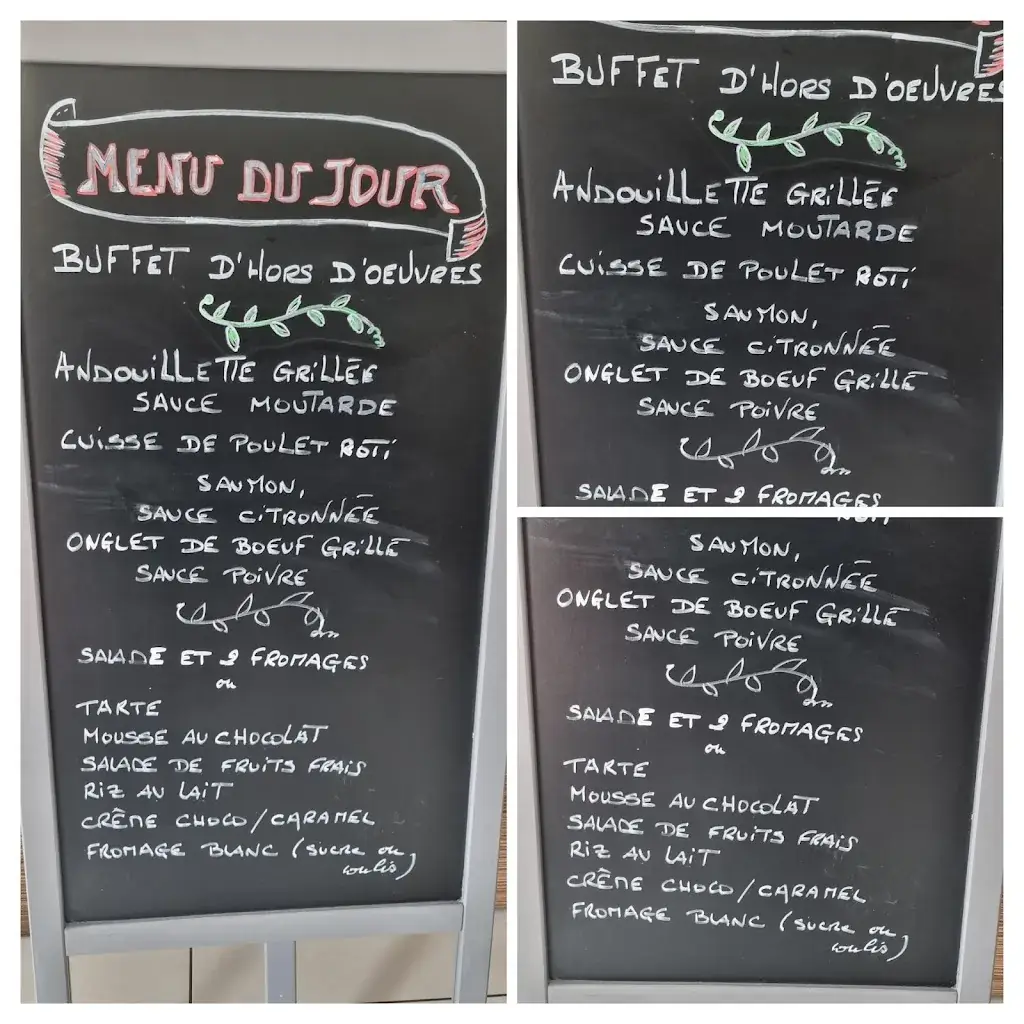 MENU DU JOUR
BUFFET D'HORS D'OEUVRES
ANDOUILLETTE GRILLÉE
SAUCE MOUTARDE
CUISSE DE POULET ROTI
SAUMON,
SAUCE CITRONNÉE
ONGLET DE BOEUF GRILLÉ
SAUCE POIVRE
SALADE ET 2 FROMAGES
ou
TARTE
MOUSSE AU CHOCOLAT
SALADE DE FRUITS FRAIS
RIZ AU LAIT
CRÊME CHOCO/CARAMEL
FROMAGE BLANC (sucre ou
coulis)
BUFFET D'HORS D'OEUVRES
ANDOUILLETTE GRILLÉE
SAUCE MOUTARDE
CUISSE DE POULET ROTI
SAUMON,
SAUCE CITRONNÉE
ONGLET DE BOEUF GRILLÉ
SAUCE POIVRE
SALADE ET 2 FROMAGES
ROTI
SAUMON,
SAUCE CITRONNÉE
ONGLET DE BOEUF GRILLÉ
SAUCE POIVRE
SALADE ET 2 FROMAGES
ou
TARTE
MOUSSE AU CHOCOLAT
SALADE DE FRUITS FRAIS
RIZ AU LAIT
CRÊME CHOCO/CARAMEL
FROMAGE BLANC (sucre ou
coulis)